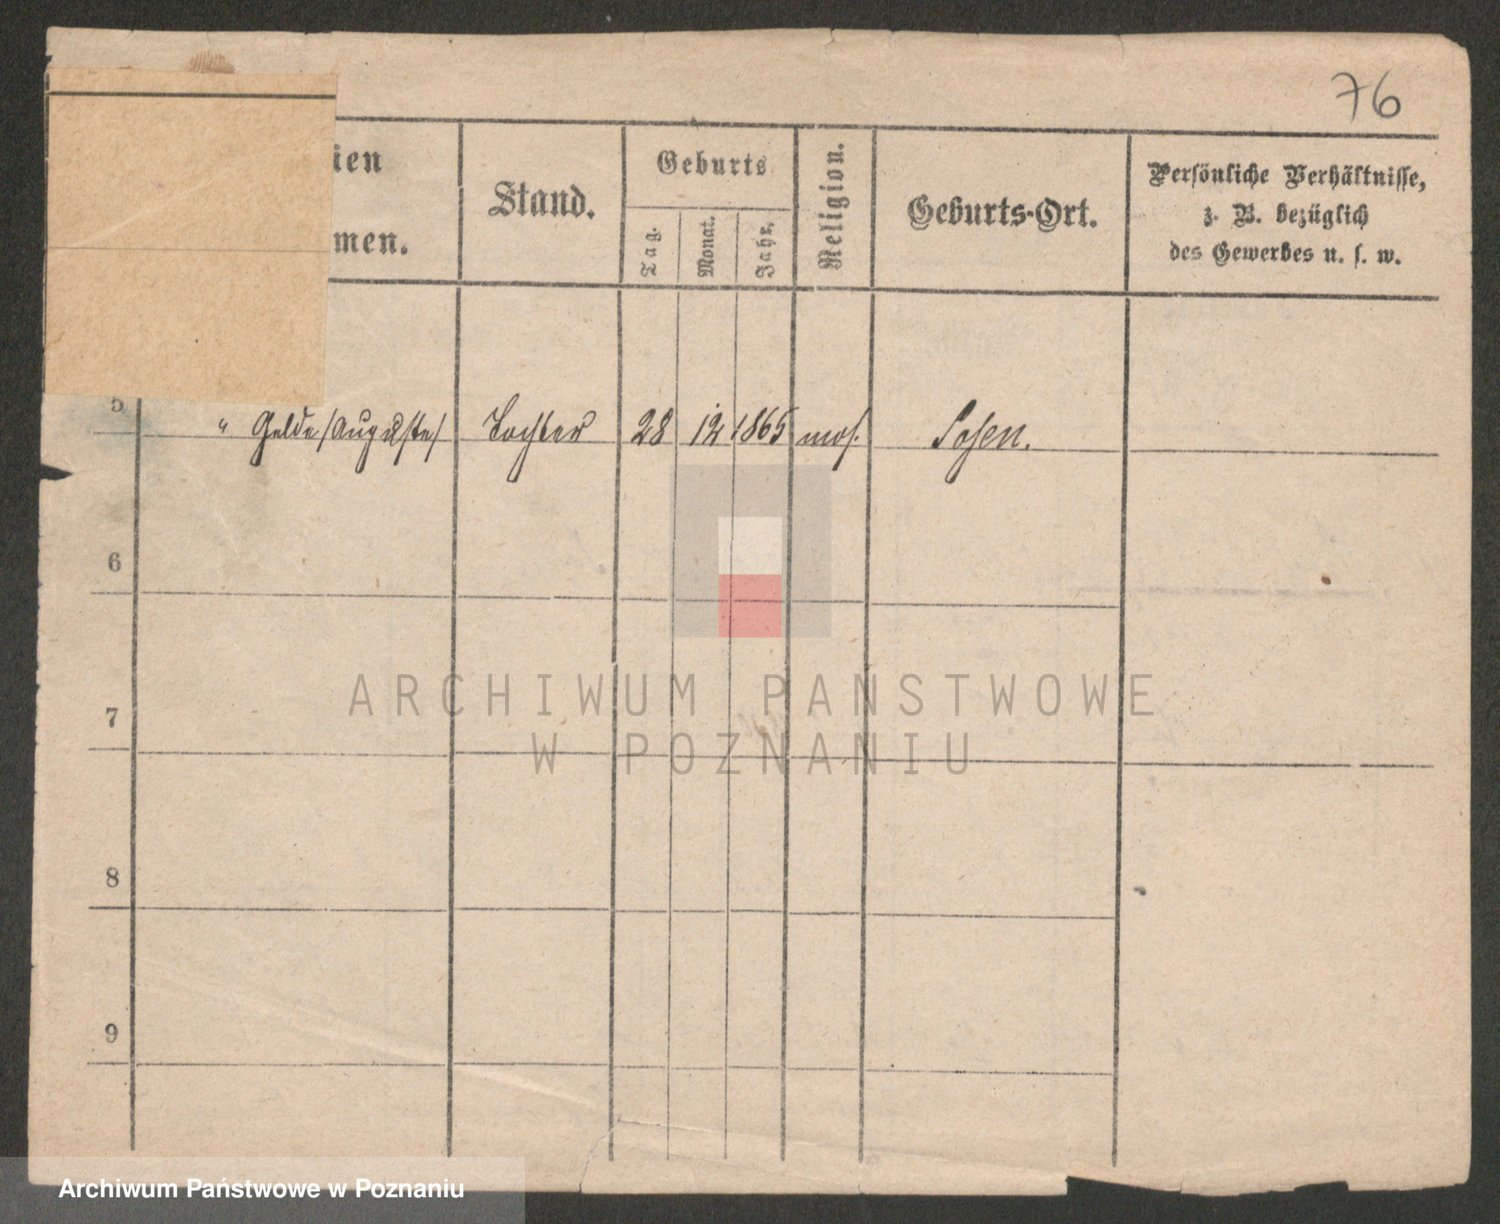 76
ien
men.
Stand.
Geburts
Tag.
Monat.
Jahr.
Religion.
Geburts-Ort.
Persönliche Verhältnisse,
z. B. bezüglich
des Gewerbes u. s. w.
5 " Gelde /Auguste/ Tochter 28 12 1865 mos. Posen.
6
7
8
9
ARCHIWUM PAŃSTWOWE
W POZNANIU
Archiwum Państwowe w Poznaniu